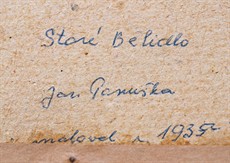 Staré Bělidlo
Jar. Panuška
maloval r. 1935